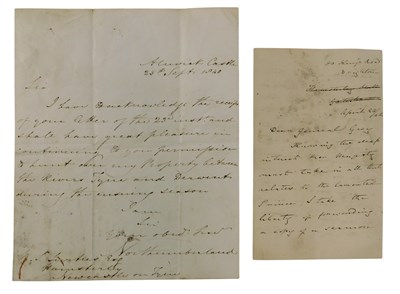 Alnwick Castle
25th Sept. 1840
Sir
I have to acknowledge the receipt
of your letter of the 23d inst and
shall have great pleasure in
continuing to you permission
to hunt over my Property between
the Rivers Tyne and Derwent
during the ensuing season
I am
Sir
Your obedt Servt
Northumberland
Esq
Hamsterley
Newcastle on Tyne
Kings Road
Brighton
April
Dear General Grey
Knowing the deep
interest Her Majesty
must take in all that
relates to the lamented
Prince I take the
liberty of forwarding
a copy of a sermon